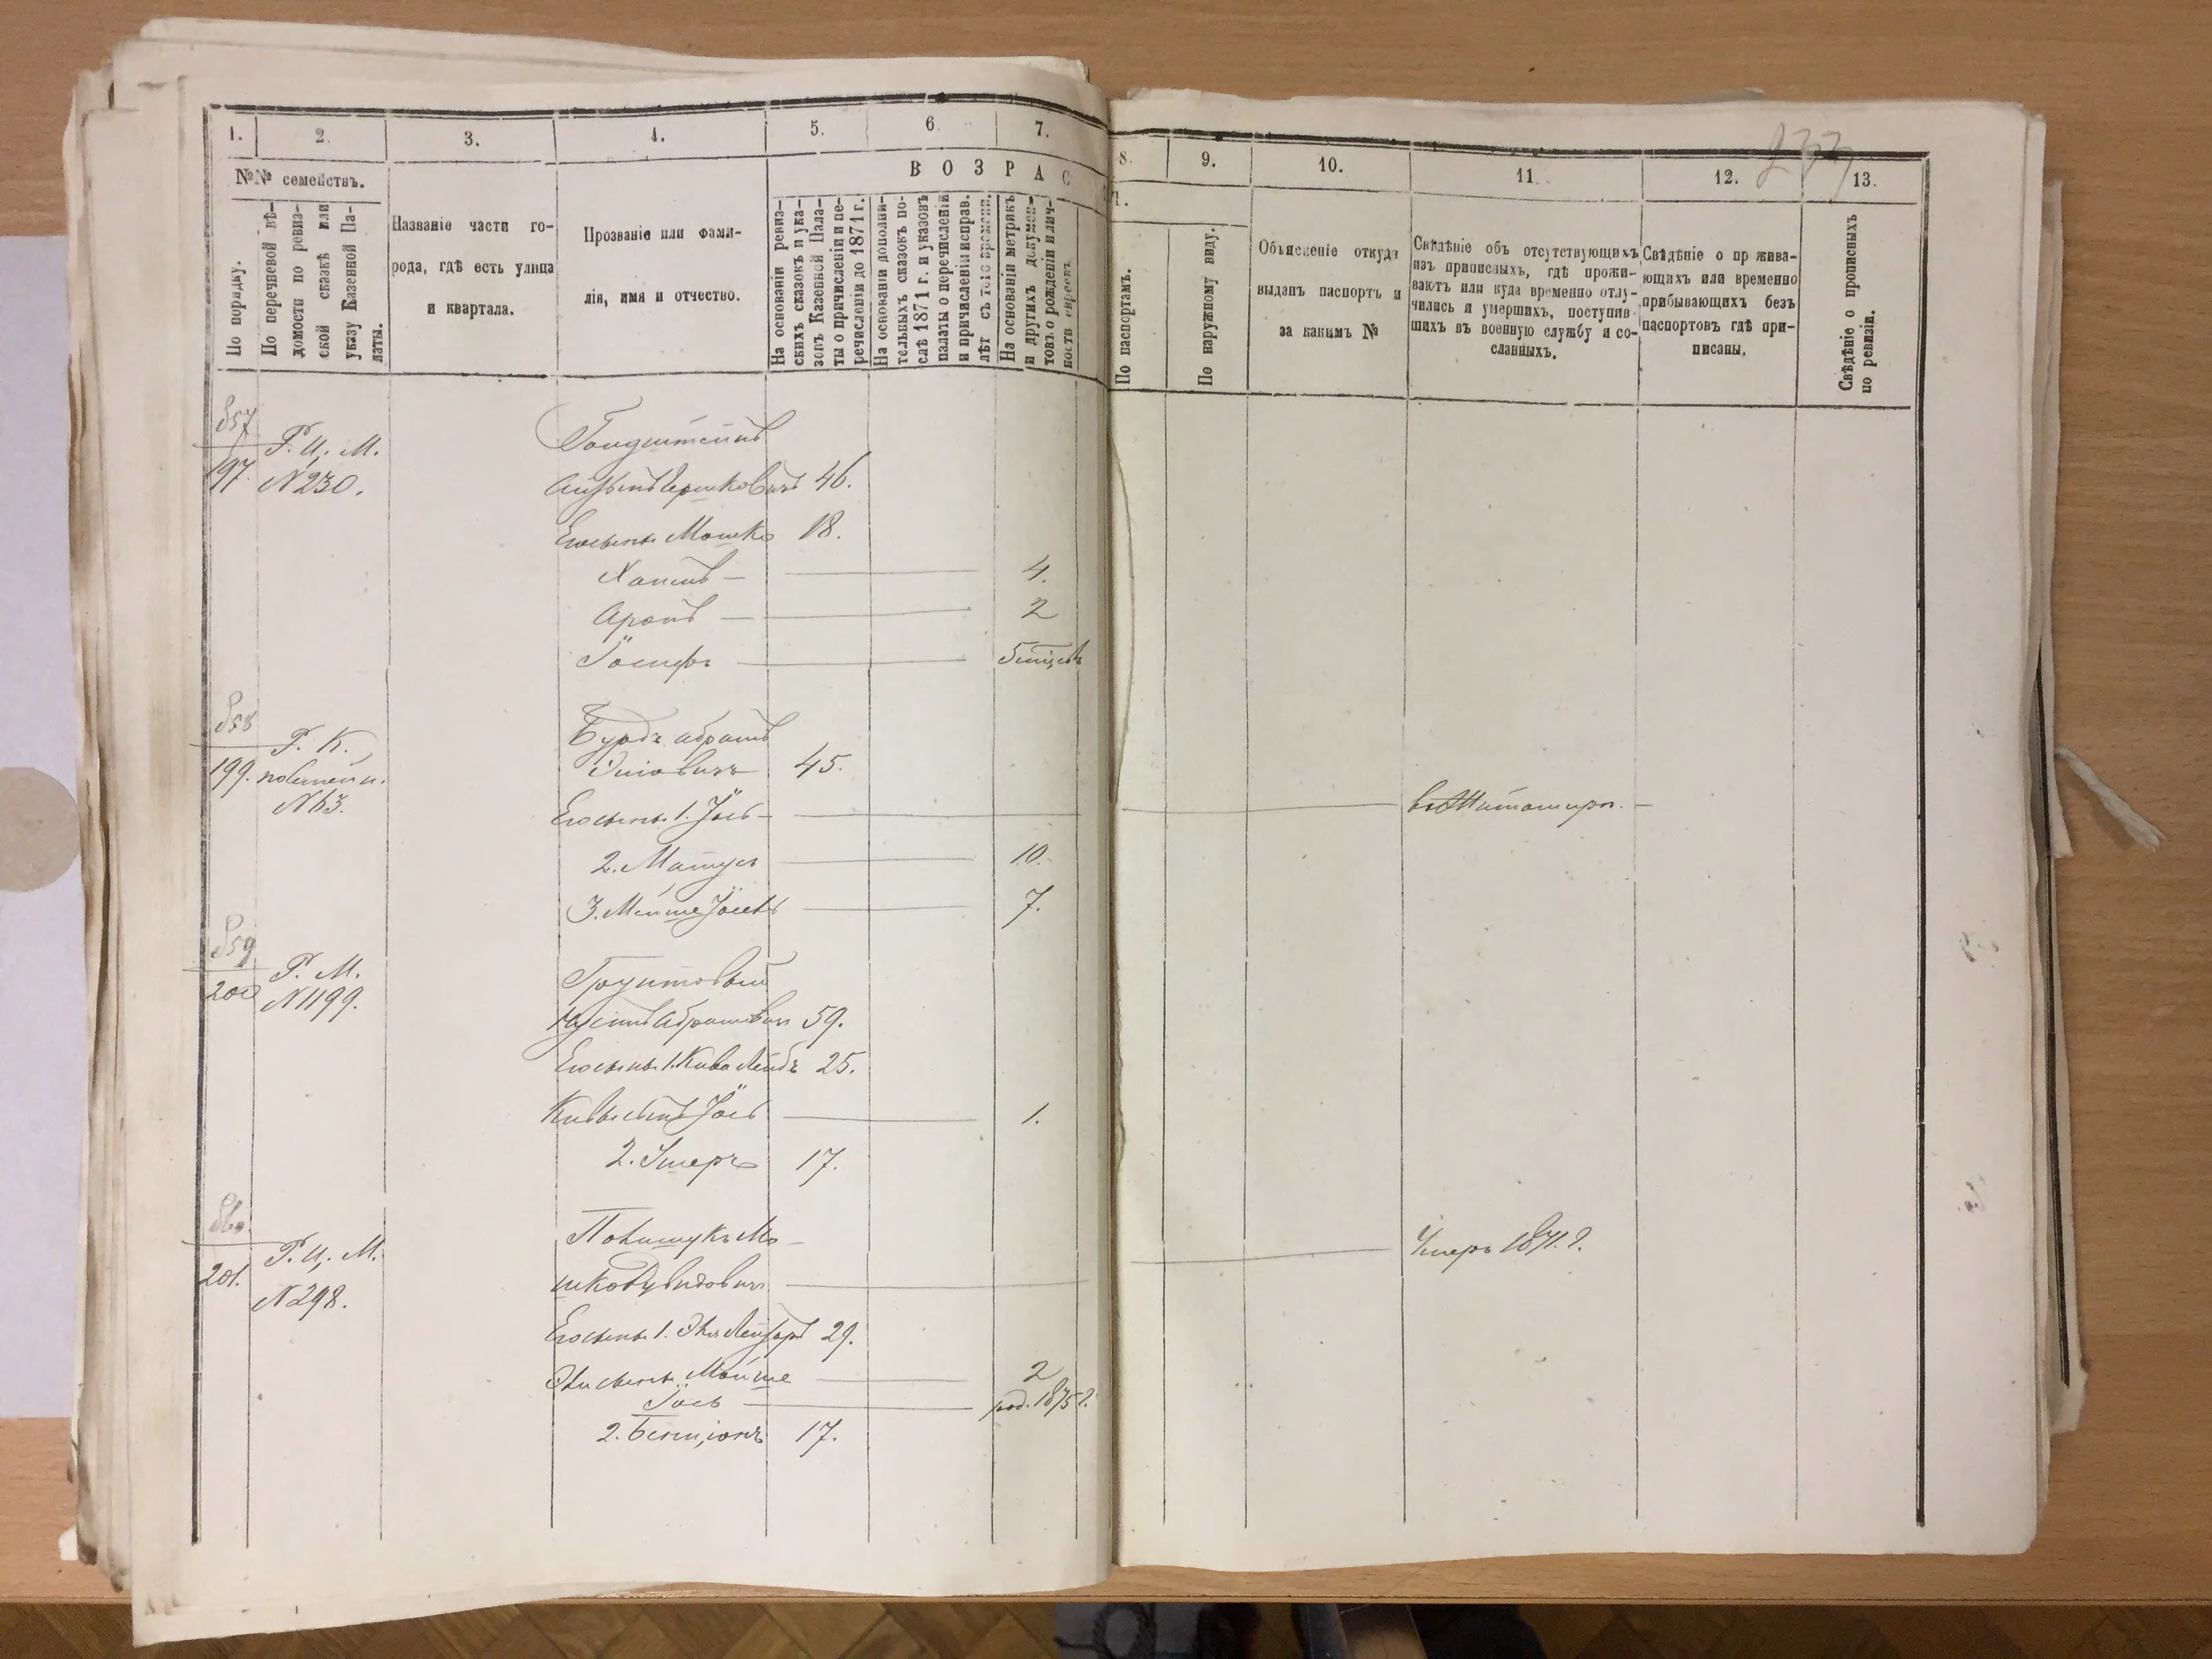 1. 2. 3. 4. 5. 6. 7. 8. 9. 10. 11. 12. 13.
№№ семействъ.
В О З Р А С Т.
По порядку.
По перечневой вѣ-
домости по ревиз-
ской сказкѣ или
указу Казенной Па-
латы.
Названіе части го-
рода, гдѣ есть улица
и квартала.
Прозваніе или фами-
лія, имя и отчество.
На основаніи ревиз-
скихъ сказокъ и ука-
зовъ Казеной Пала-
ты о причисленіи и пе-
речисленіи до 1871 г.
На основаніи дополни-
тельныхъ сказокъ по-
слѣ 1871 г. и указовъ
палаты о перечисленіи
и причисленіи исправ.
лѣт съ того времени.
На основаніи метрикъ
и другихъ докумен-
товъ о рожденіи и лич-
ности евреевъ
По паспортамъ.
По наружному виду.
Объясненіе откуда
выданъ паспортъ и
за какимъ №
Свѣдѣніе объ отсутствующихъ
изъ приписныхъ, гдѣ прожи-
ваютъ или куда временно отлу-
чились и умершихъ, поступив
шихъ въ военную службу и со-
сланныхъ.
Свѣдѣніе о пр жива-
ющихъ или временно
прибывающихъ безъ
паспортовъ гдѣ при-
писаны.
Свѣдѣніе о прописныхъ
по ревизіи.
857
197. Р. Ц. М.
№ 230.
Гольдштейнъ
Гершковичъ 46.
Его сыны Мошко 18.
Хаимъ — 4.
Аронъ — 2
Іосифъ — 5 мѣсяц.
858
199. Р. К.
№ 63.
Бурдъ Абрамъ
45.
Его сыны 1. Іось — въ Житомирѣ. —
2. Матусъ 10.
3. Мойше Іосевъ 7.
859
200 Р. М.
№ 1199.
Грунтовый
Абрамовичъ 59.
Его сыны 1. Кива Лейбъ 25.
Кивы сынъ Іось 1.
2. 17.
860
201. Р. Ц. М.
№ 298.
Полищукъ Мо-
шко Дувидовичъ Умеръ 1871 г.
Его сыны 1. Эля Лейзоръ 29.
Эли сыны Мойше 2
Іось — род. 1875 г.
2. Бенціонъ 17.